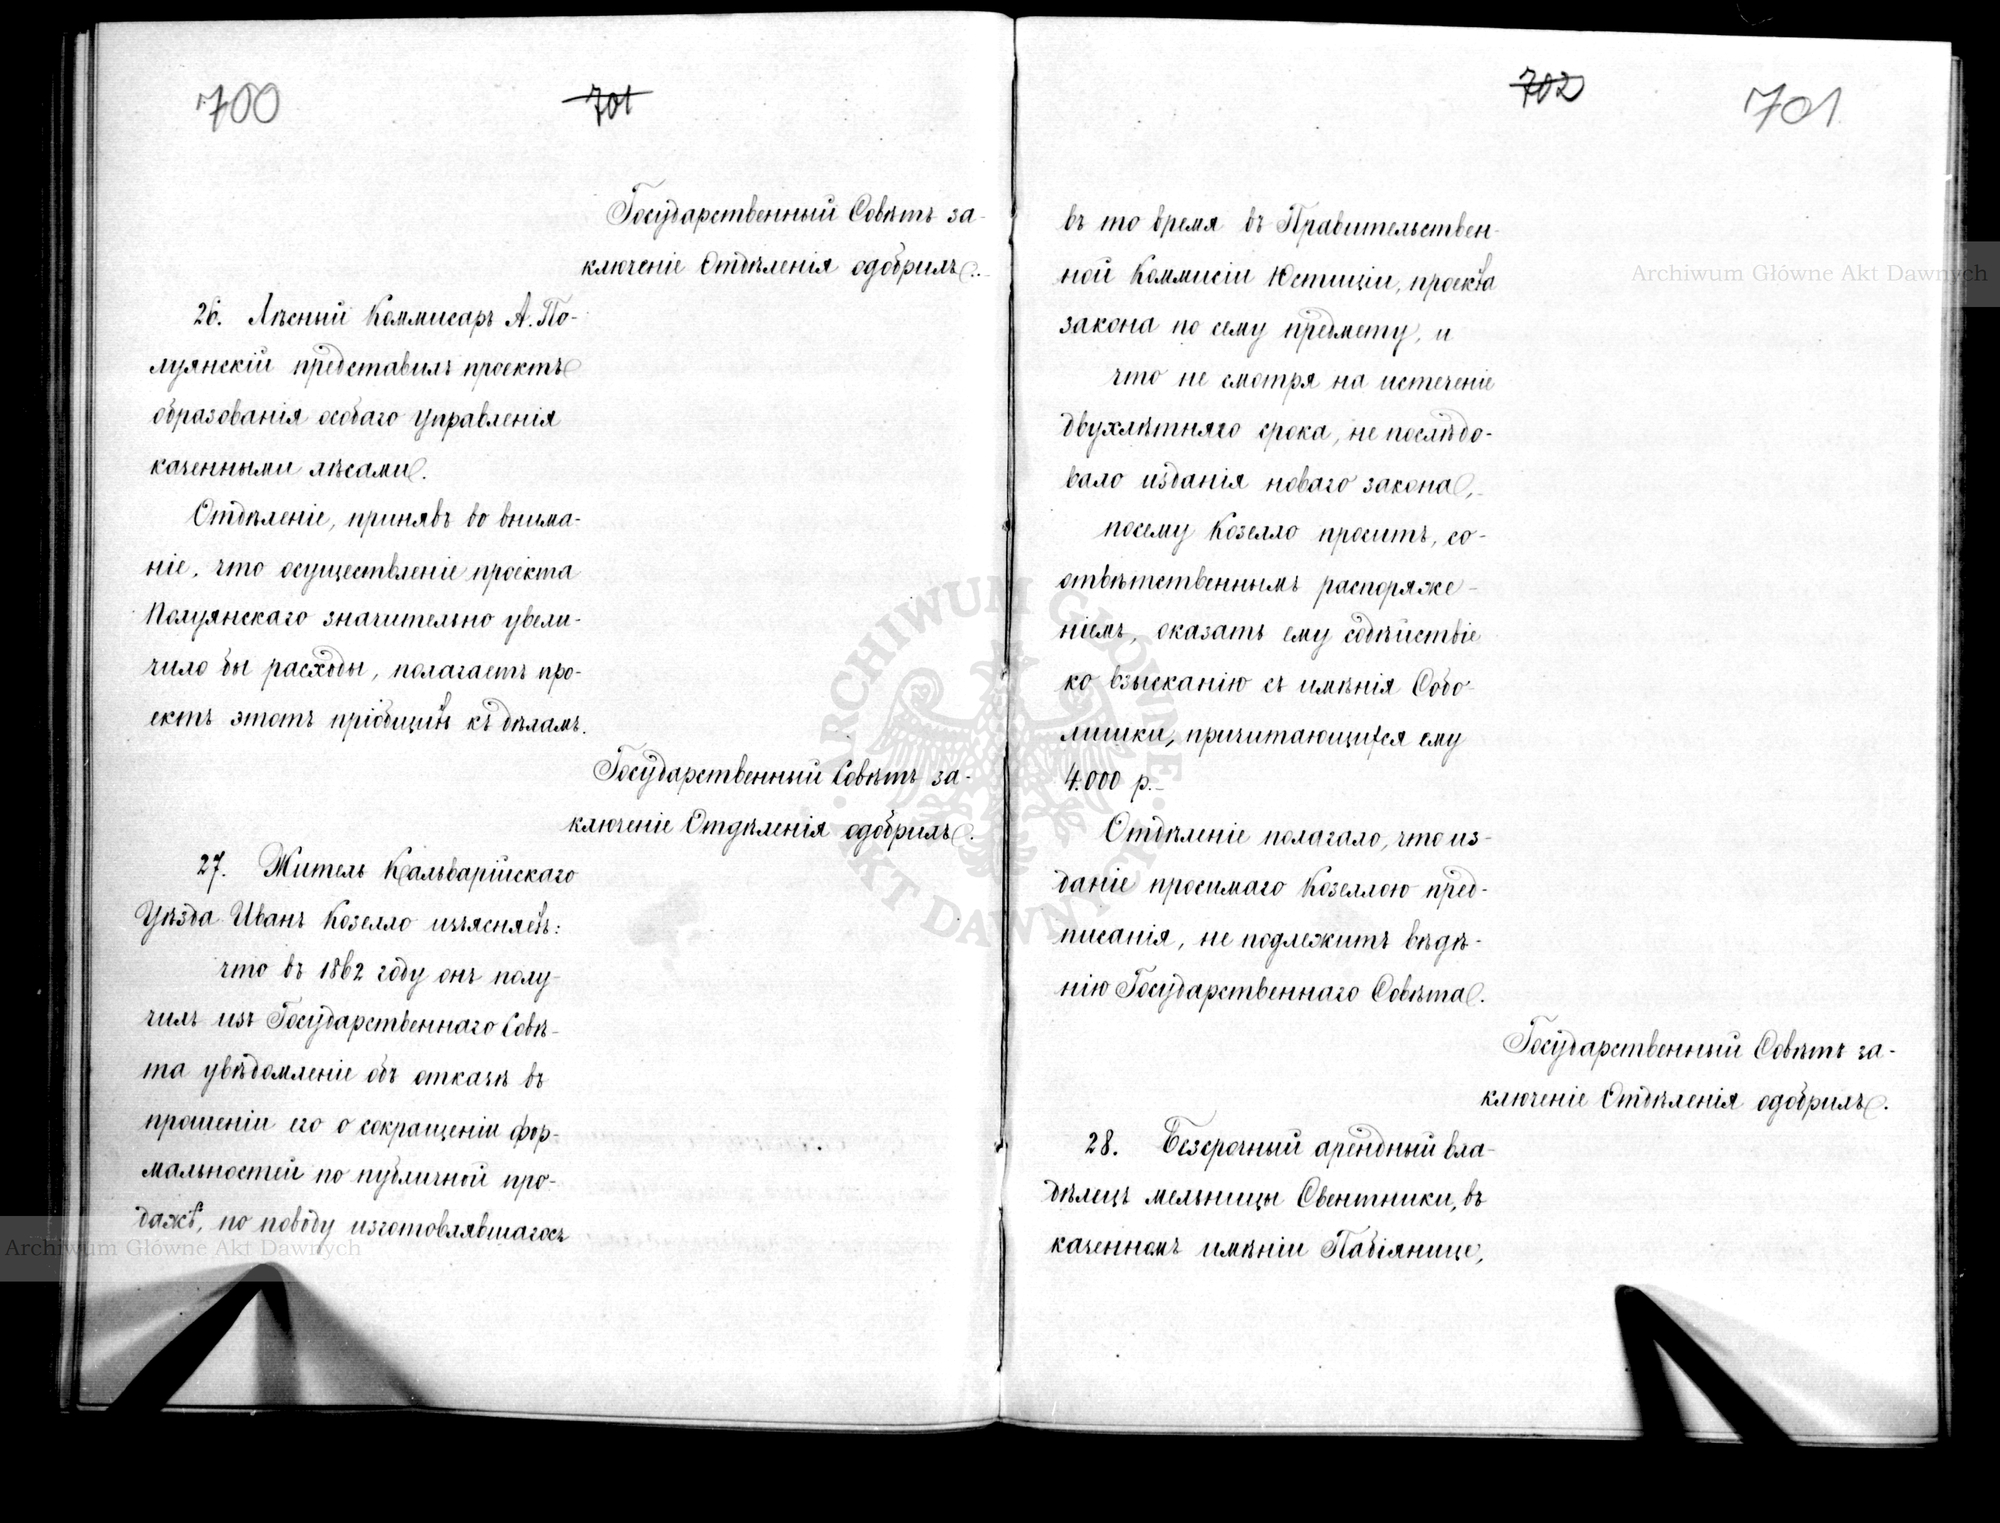 700
701
Государственный Совѣтъ за-
ключеніе Отдѣленія одобрилъ.
26. Лѣсный Коммисаръ А. По-
луянскій представилъ проектъ
образованія особаго Управленія
казенными лѣсами.
Отдѣленіе, принявъ во внима-
ніе, что осуществленіе проекта
Полуянскаго значительно увели-
чило бы расходы, полагаетъ про-
ектъ этотъ пріобщить къ дѣламъ.
Государственный Совѣтъ за-
ключеніе Отдѣленія одобрилъ.
27. Житель Кальварійскаго
Уѣзда Иванъ Козелло изъясняетъ:
что въ 1862 году онъ полу-
чилъ изъ Государственнаго Совѣ-
та увѣдомленіе объ отказѣ въ
прошеніи его о сокращеніи фор-
мальностей по публичной про-
дажѣ, по поводу изготовлявшагося
702
701
въ то время въ Правительствен-
ной Коммисіи Юстиціи, проекта
закона по сему предмету, и
что не смотря на истеченіе
двухлѣтняго срока, не послѣдо-
вало изданія новаго закона,
посему Козелло проситъ, со-
отвѣтственнымъ распоряже-
ніемъ, оказать ему содѣйствіе
ко взысканію съ имѣнія Собо-
лишки, причитающихся ему
4.000 р.
Отдѣленіе полагало, что из-
даніе просимаго Козеллою пред-
писанія, не подлежитъ вѣдѣ-
нію Государственнаго Совѣта.
Государственный Совѣтъ за-
ключеніе Отдѣленія одобрилъ.
28. Безсрочный арендный вла-
дѣлецъ мельницы Свентники, въ
казенномъ имѣніи Пабіянице,
Archiwum Główne Akt Dawnych
Archiwum Główne Akt Dawnych
ARCHIWUM GŁÓWNE
AKT DAWNYCH